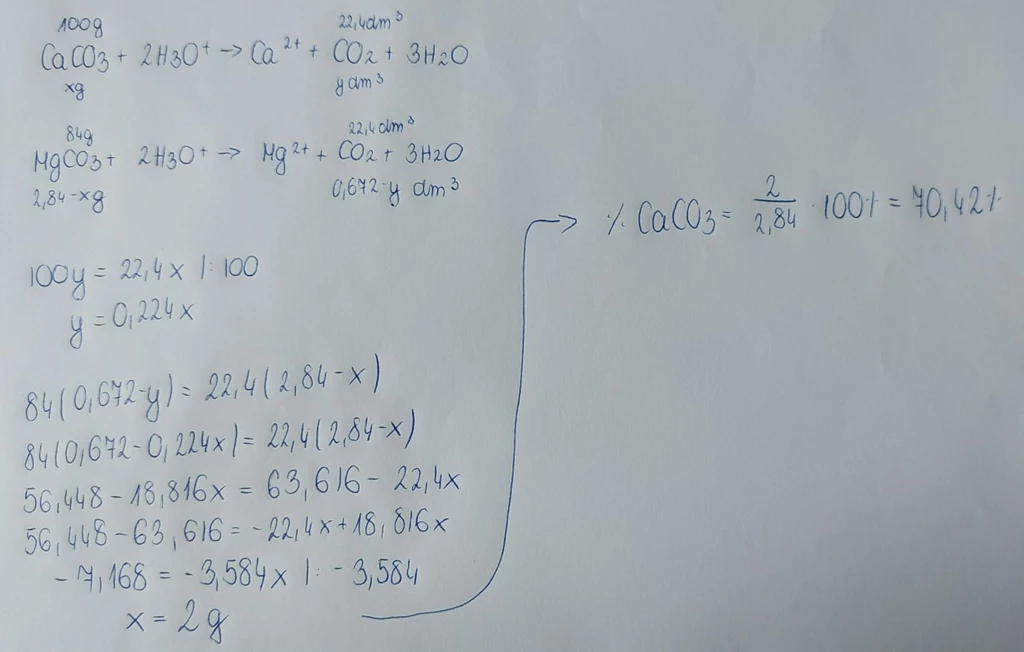 100g 22,4dm³
CaCO3 + 2H3O⁺ → Ca²⁺ + CO2 + 3H2O
xg y dm³
84g 22,4dm³
MgCO3 + 2H3O⁺ → Mg²⁺ + CO2 + 3H2O
2,84-xg 0,672-y dm³
100y = 22,4x |: 100
y = 0,224x
84(0,672-y) = 22,4(2,84-x)
84(0,672-0,224x) = 22,4(2,84-x)
56,448 - 18,816x = 63,616 - 22,4x
56,448 - 63,616 = -22,4x + 18,816x
-7,168 = -3,584x |: -3,584
x = 2g
% CaCO3 = 2/2,84 · 100% = 70,42%